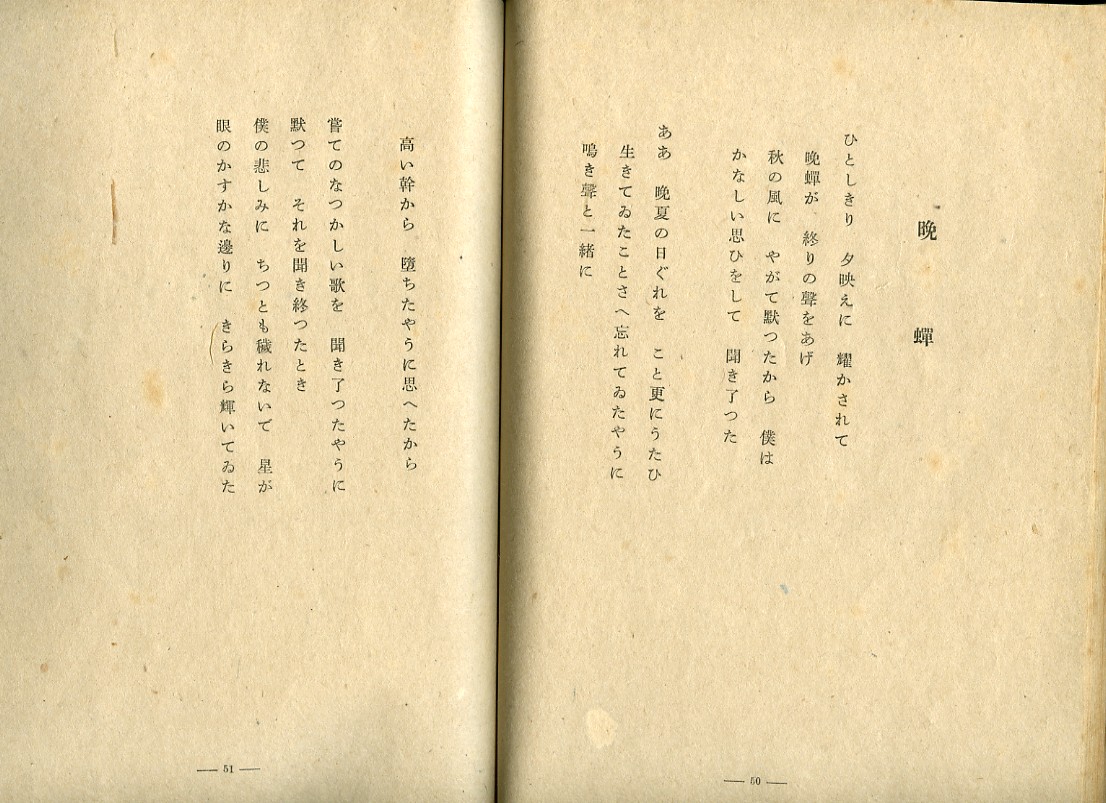 晩蟬
ひとしきり　夕映えに　耀かされて
晩蟬が　終りの聲をあげ
秋の風に　やがて默つたから　僕は
かなしい思ひをして　聞き了つた
ああ　晩夏の日ぐれを　こと更にうたひ
生きてゐたことさへ忘れてゐたやうに
鳴き聲と一緖に
— 50 —
高い幹から　墮ちたやうに思へたから
嘗てのなつかしい歌を　聞き了つたやうに
默つて　それを聞き終つたとき
僕の悲しみに　ちつとも穢れないで　星が
眼のかすかな邊りに　きらきら輝いてゐた
— 51 —